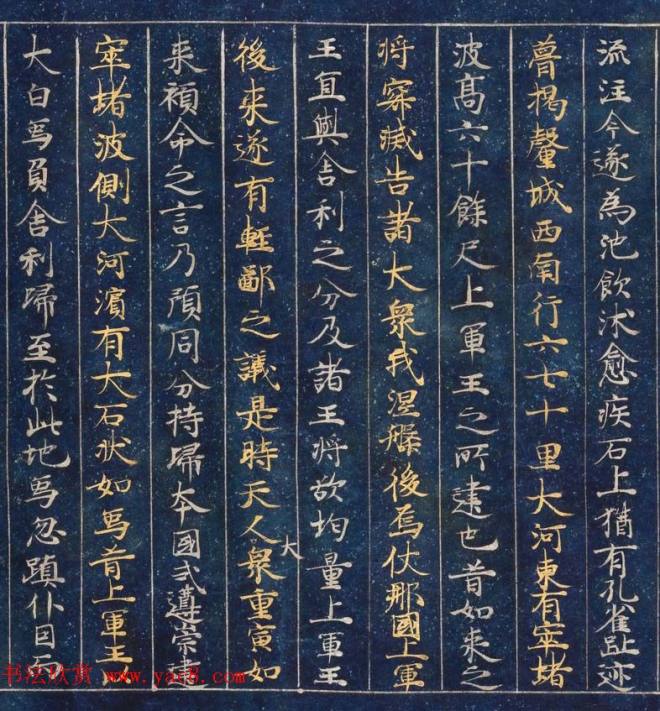 流注今遂為池飲沐愈疾石上猶有孔雀趾迹
瞢揭釐城西南行六七十里大河東有窣堵
波高六十餘尺上軍王之所建也昔如来之
将寂滅告諸大衆我涅槃後烏仗那國上軍
王宜與舍利之分及諸王将欲均量上軍王
後来遂有輕鄙之議是時天人大衆重宣如
来顧命之言乃預同分持歸本國式遵崇建
窣堵波側大河濱有大石狀如象昔上軍王以
大白象負舍利歸至於此地象忽蹎仆因而
书法欣赏 www.yac8.com